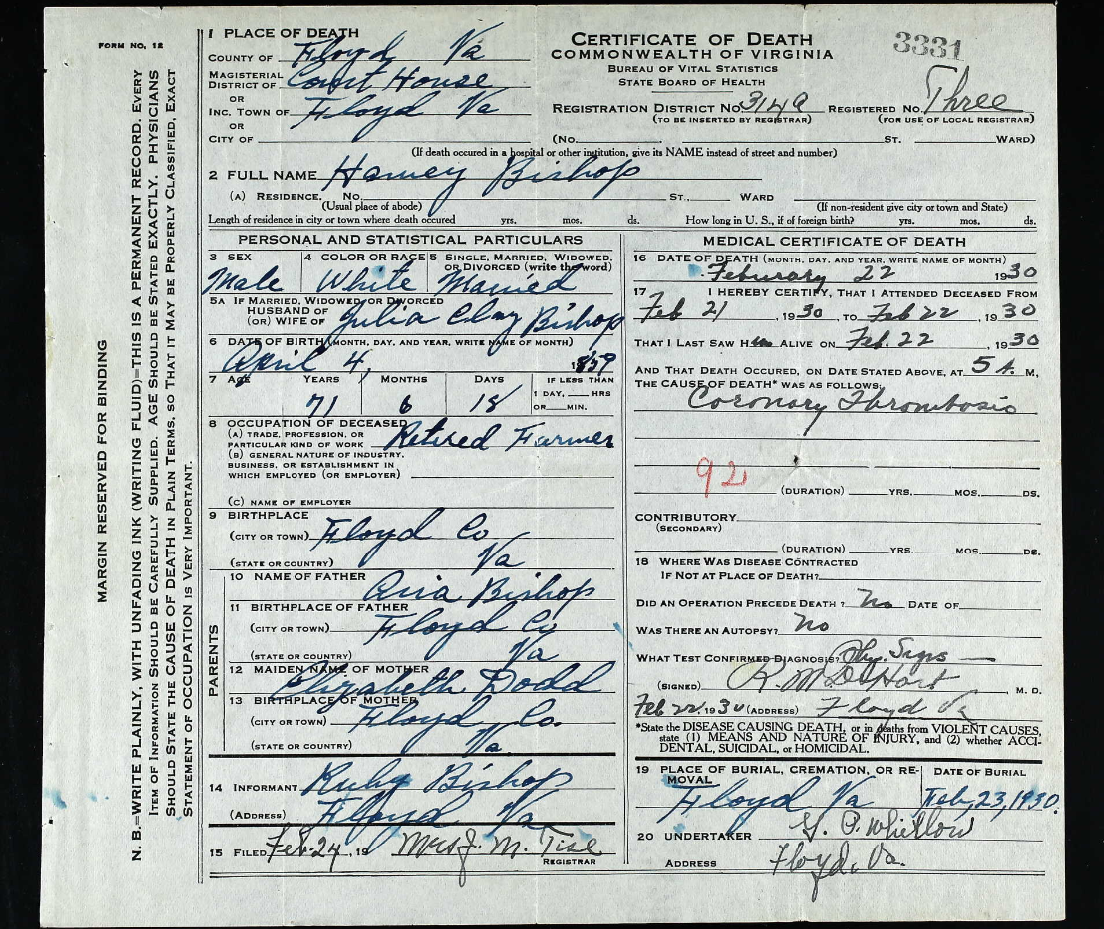 FORM NO. 12
3331
MARGIN RESERVED FOR BINDING
N. B.—WRITE PLAINLY, WITH UNFADING INK (WRITING FLUID)—THIS IS A PERMANENT RECORD. EVERY
ITEM OF INFORMATION SHOULD BE CAREFULLY SUPPLIED. AGE SHOULD BE STATED EXACTLY. PHYSICIANS
SHOULD STATE THE CAUSE OF DEATH IN PLAIN TERMS, SO THAT IT MAY BE PROPERLY CLASSIFIED, EXACT
STATEMENT OF OCCUPATION IS VERY IMPORTANT.
1 PLACE OF DEATH
COUNTY OF Floyd Va
MAGISTERIAL DISTRICT OF Court House
OR
INC. TOWN OF Floyd Va
OR
CITY OF
CERTIFICATE OF DEATH
COMMONWEALTH OF VIRGINIA
BUREAU OF VITAL STATISTICS
STATE BOARD OF HEALTH
REGISTRATION DISTRICT No 3149 REGISTERED No. Three
(TO BE INSERTED BY REGISTRAR) (FOR USE OF LOCAL REGISTRAR)
(No. ST. WARD)
(If death occured in a hospital or other institution, give its NAME instead of street and number)
2 FULL NAME Harvey Bishop
(A) RESIDENCE. No. ST., WARD
(Usual place of abode) (If non-resident give city or town and State)
Length of residence in city or town where death occured yrs. mos. ds. How long in U. S., if of foreign birth? yrs. mos. ds.
PERSONAL AND STATISTICAL PARTICULARS
3 SEX 4 COLOR OR RACE 5 SINGLE, MARRIED, WIDOWED, OR DIVORCED (write the word)
Male White Married
5A IF MARRIED, WIDOWED, OR DIVORCED
HUSBAND OF
(OR) WIFE OF Julia Clay Bishop
6 DATE OF BIRTH (MONTH, DAY, AND YEAR, WRITE NAME OF MONTH)
April 4, 1859
7 AGE YEARS MONTHS DAYS IF LESS THAN
71 6 18 1 DAY, HRS
OR MIN.
8 OCCUPATION OF DECEASED
(A) TRADE, PROFESSION, OR
PARTICULAR KIND OF WORK Retired Farmer
(B) GENERAL NATURE OF INDUSTRY,
BUSINESS, OR ESTABLISHMENT IN
WHICH EMPLOYED (OR EMPLOYER)
(C) NAME OF EMPLOYER
9 BIRTHPLACE
(CITY OR TOWN) Floyd Co
(STATE OR COUNTRY) Va
PARENTS
10 NAME OF FATHER Asa Bishop
11 BIRTHPLACE OF FATHER
(CITY OR TOWN) Floyd Co
(STATE OR COUNTRY) Va
12 MAIDEN NAME OF MOTHER
Elizabeth Dodd
13 BIRTHPLACE OF MOTHER
(CITY OR TOWN) Floyd Co.
(STATE OR COUNTRY) Va.
14 INFORMANT Ruby Bishop
(ADDRESS) Floyd Va
15 FILED Feb-24, 19 Mrs J. M. Tise
REGISTRAR
MEDICAL CERTIFICATE OF DEATH
16 DATE OF DEATH (MONTH, DAY, AND YEAR, WRITE NAME OF MONTH)
Feburary 22 1930
17 I HEREBY CERTIFY, THAT I ATTENDED DECEASED FROM
Feb 21, 1930, TO Feb 22, 1930
THAT I LAST SAW Him ALIVE ON Feb. 22, 1930
AND THAT DEATH OCCURED, ON DATE STATED ABOVE, AT 5 A. M,
THE CAUSE OF DEATH* WAS AS FOLLOWS:
Coronary Thrombosis
92
(DURATION) YRS. MOS. DS.
CONTRIBUTORY
(SECONDARY)
(DURATION) YRS. MOS. DS.
18 WHERE WAS DISEASE CONTRACTED
IF NOT AT PLACE OF DEATH?
DID AN OPERATION PRECEDE DEATH? No DATE OF
WAS THERE AN AUTOPSY? No
WHAT TEST CONFIRMED DIAGNOSIS? Phy. Sigs
(SIGNED) R. M. DeHart M. D.
Feb 22, 1930 (ADDRESS) Floyd Va
*State the DISEASE CAUSING DEATH, or in deaths from VIOLENT CAUSES,
state (1) MEANS AND NATURE OF INJURY, and (2) whether ACCI-
DENTAL, SUICIDAL, or HOMICIDAL.
19 PLACE OF BURIAL, CREMATION, OR RE-
MOVAL DATE OF BURIAL
Floyd Va Feb, 23, 1930.
20 UNDERTAKER Whitlow
ADDRESS Floyd, Va.